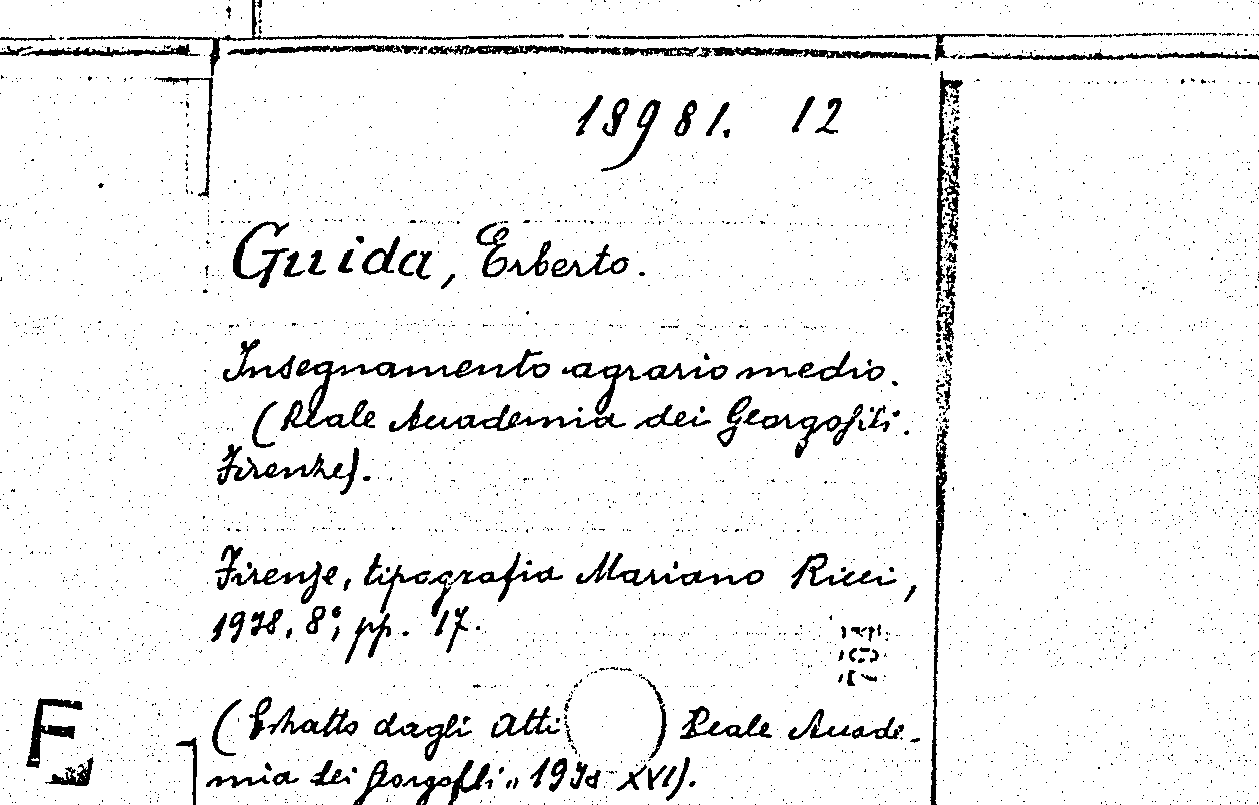 18981. 12
Guida, Erberto.
Insegnamento agrario medio.
(Reale Accademia dei Georgofili.
Firenze).
Firenze, tipografia Mariano Ricci,
1938, 8°, pp. 17.
(Estratto dagli Atti Reale Accade-
mia dei Georgofili" 1938 XVI).
F